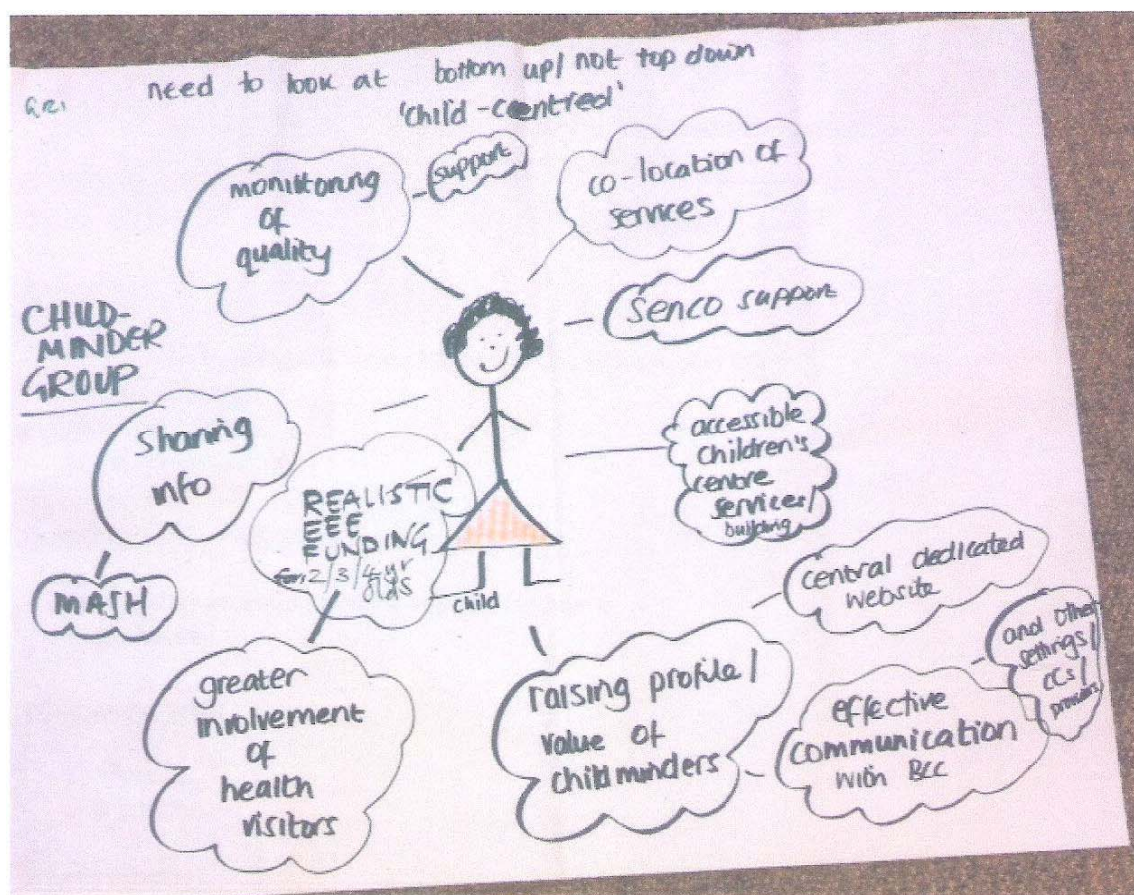 need to look at bottom up/ not top down
'child-centred'
monitoring
of
quality
support
co-location of
services
Senco support
CHILD-
MINDER
GROUP
sharing
info
MASH
REALISTIC
EEE
FUNDING
for 2/3/4 yr
olds
child
accessible
children's
centre
services/
building
central dedicated
website
greater
involvement
of
health
visitors
raising profile/
value of
childminders
effective
communication
with BCC
and other
settings/
CCs/
providers